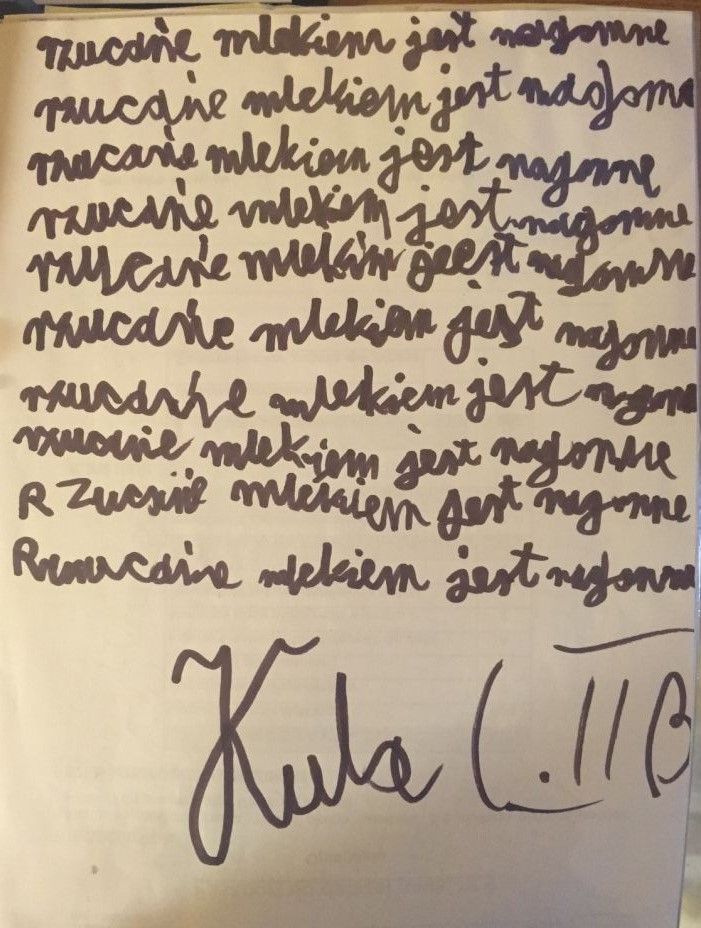 rzucanie mlekiem jest nagonne
rzucanie mlekiem jest nadgome
rzucanie mlekiem jest nagonne
rzucanie mlekiem jest nagomne
rzucanie mlekim jeest nagomne
rzucanie mlekiem jest nagonne
rzucanie mlekiem jest nagonne
rzucanie mlekiem jest nagonne
RZucanie mlekiem jest nagonne
Rzucanie mlekiem jest nagonne
Kuba C. II B